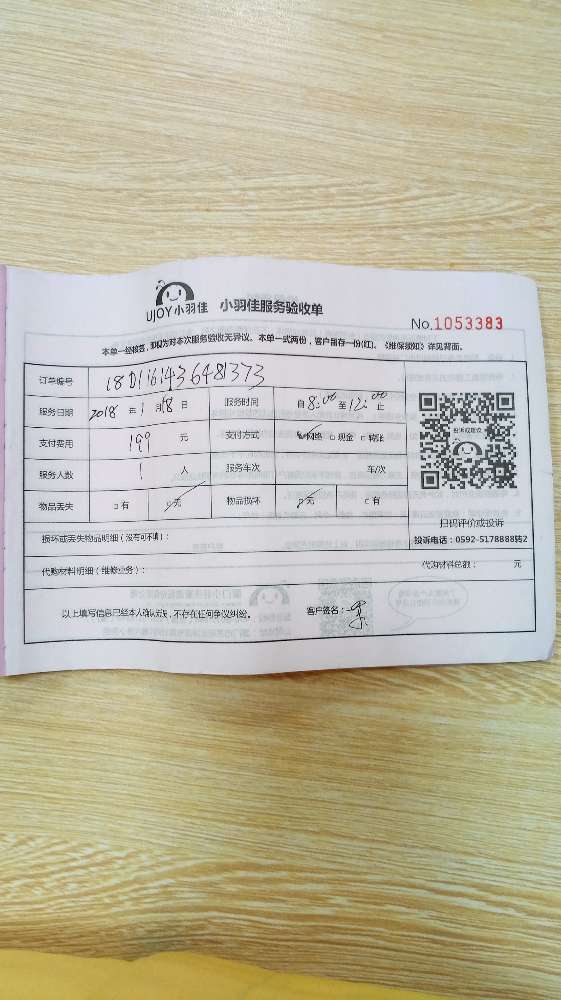 UJOY小羽佳 小羽佳服务验收单
No.1053383
本单一经核签,即视为对本次服务验收无异议。本单一式两份,客户留存一份(红)。《维保须知》详见背面。
订单编号 18D1161436481373
服务日期 2018 年 1 月 18 日 服务时间 自 8:00 至 12:00 止
支付费用 199 元 支付方式 网络 □ 现金 □ 转账
服务人数 1 人 服务车次 车/次
物品丢失 □ 有 □ 无 物品损坏 □ 无 □ 有
投诉或建议
扫码评价或投诉
损坏或丢失物品明细(没有可不填):
投诉电话:0592-5178888转2
代购材料明细(维修业务): 代购材料总额: 元
以上填写信息已经本人确认无误,不存在任何争议纠纷。 客户签名: